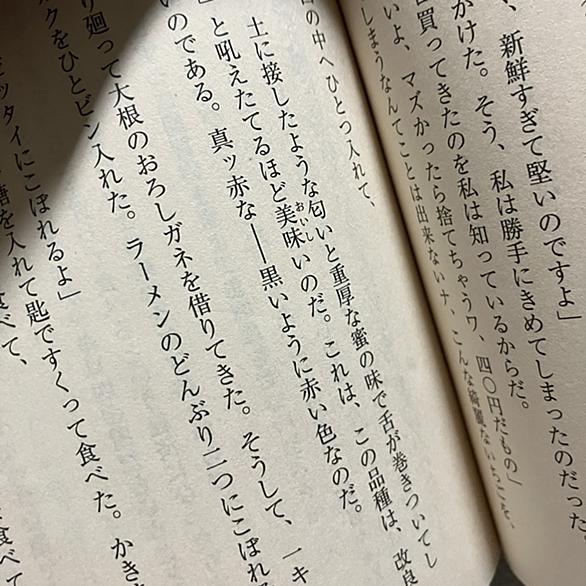 、新鮮すぎて堅いのですよ」
かけた。そう、私は勝手にきめてしまったのだった。
買ってきたのを私は知っているからだ。
いよ、マズかったら捨てちゃうワ、四〇円だもの」
しまうなんてことは出来ないナ、こんな綺麗ないちごを、
の中へひとつ入れて、
土に接したような匂いと重厚な蜜の味で舌が巻きついてし
」と吼えたてるほど美味いのだ。これは、この品種は、改良
いのである。真ッ赤な――黒いように赤い色なのだ。
り廻って大根のおろしガネを借りてきた。そうして、一キ
クをひとビン入れた。ラーメンのどんぶり二つにこぼれる
ッタイにこぼれるよ」
糖を入れて匙ですくって食べた。かき
食べて、
食べて